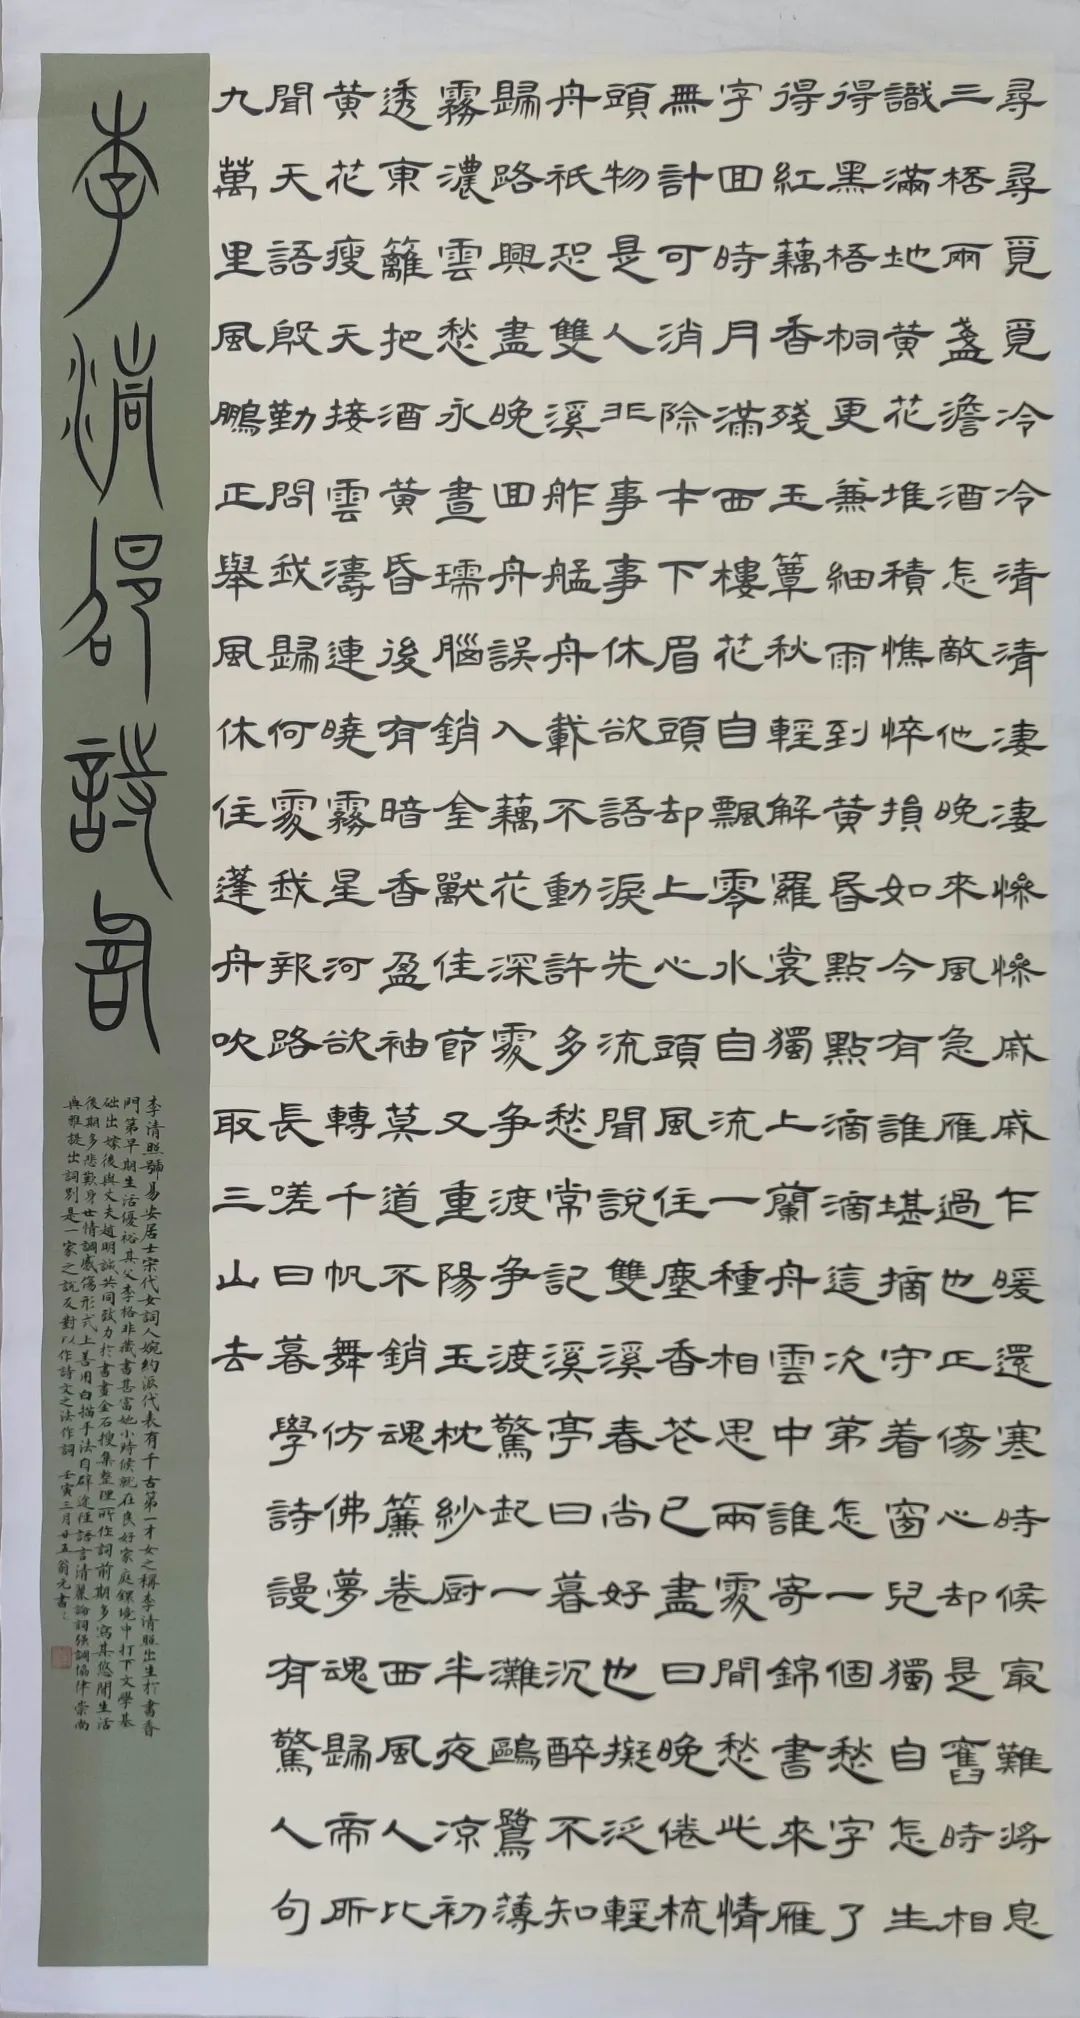 尋尋覓覓冷冷清清凄凄慘慘戚戚乍暖還寒時候最難將息
三桮兩盞澹酒怎敵他晚來風急雁過也正傷心却是舊時相
識滿地黃花堆積憔悴損如今有誰堪摘守着窗兒獨自怎生
得黑梧桐更兼細雨到黃昏點點滴滴這次第怎一個愁字了
得紅藕香殘玉簟秋輕解羅裳獨上蘭舟雲中誰寄錦書來雁
字回時月滿西樓花自飄零水自流一種相思兩處閒愁此情
無計可消除才下眉頭却上心頭風住塵香花已盡日晚倦梳
頭物是人非事事休欲語淚先流聞說雙溪春尚好也擬泛輕
舟祇恐雙溪舴艋舟載不動許多愁常記溪亭日暮沉醉不知
歸路興盡晚回舟誤入藕花深處争渡争渡驚起一灘鷗鷺薄
霧濃雲愁永晝瑞腦銷金獸佳節又重陽玉枕紗厨半夜凉初
透東籬把酒黃昏後有暗香盈袖莫道不銷魂簾卷西風人比
黃花瘦天接雲濤連曉霧星河欲轉千帆舞仿佛夢魂歸帝所
聞天語殷勤問我歸何處我報路長嗟日暮學詩謾有驚人句
九萬里風鵬正舉風休住蓬舟吹取三山去
李清照詩詞
李清照號易安居士宋代女詞人婉約派代表有千古第一才女之稱李清照出生於書香
門第早期生活優裕其父李格非藏書甚富她小時候就在良好家庭環境中打下文學基
础出嫁後與丈夫趙明誠共同致力於書畫金石搜集整理所作詞前期多寫其悠閒生活
後期多悲歎身世情調感傷形式上善用白描手法自辟途徑語言清麗論詞強調協律崇尚
典雅提出詞別是一家之說反對以作詩文之法作詞壬寅三月廿五翁元書